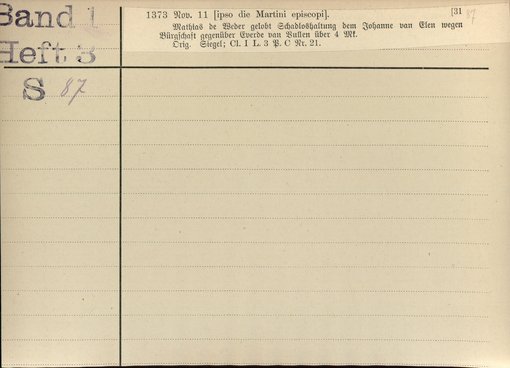 Band 1
Heft 3
S 87
1373 Nov. 11 [ipso die Martini episcopi]. [31 87
Mathias de Weder gelobt Schadloshaltung dem Johanne van Elen wegen
Bürgschaft gegenüber Everde van Vullen über 4 Mk.
Orig. Siegel; Cl. I L. 3 P. C Nr. 21.